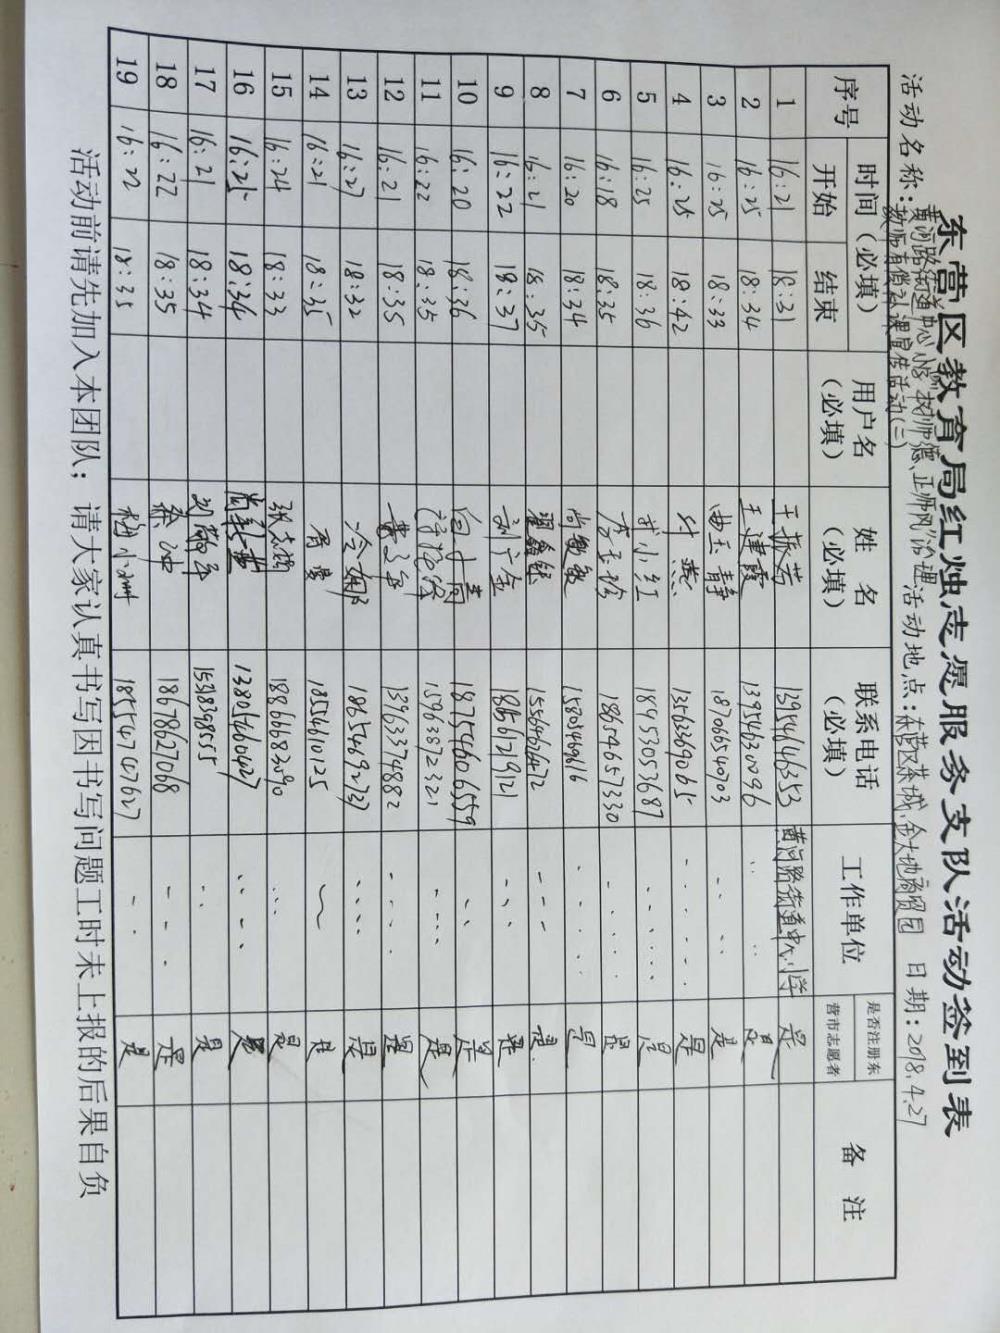 东营区教育局红烛志愿服务支队活动签到表
活动名称：黄河路街道中心小学“树师德、正师风”治理 活动地点：东营区茶城、金大地商贸园 日期：2018.4.27
教师有偿补课宣传活动(二)
序号 时间（必填） 用户名（必填） 姓名（必填） 联系电话（必填） 工作单位 是否注册东营市志愿者 备注
开始 结束
1 16:21 18:31 王振芳 13954646353 黄河路街道中心小学 是
2 16:25 18:34 王建霞 13954630096 是
3 16:25 18:33 曲玉静 18706654703 是
4 16:25 18:42 燕 13563369065 是
5 16:25 18:36 小红 18953053687 是
6 16:18 18:35 18654657330 是
7 16:20 18:34 尚敏敏 是
8 16:21 18:35 是
9 16:22 18:37 刘广金 18561219121 是
10 16:20 18:36 18754606559 是
11 16:22 18:35 15963872321 是
12 16:21 18:35 13963374882 是
13 16:27 18:32 冷娜 18654692737 是
14 16:21 18:35 18554610125 是
15 16:24 18:33 18866683090 是
16 16:25 18:34 尚 13805460427 是
17 16:21 18:34 刘 是
18 16:22 18:35 秦冲 18678627068 是
19 16:22 18:35 杜小 18554747627 是
活动前请先加入本团队；请大家认真书写因书写问题工时未上报的后果自负